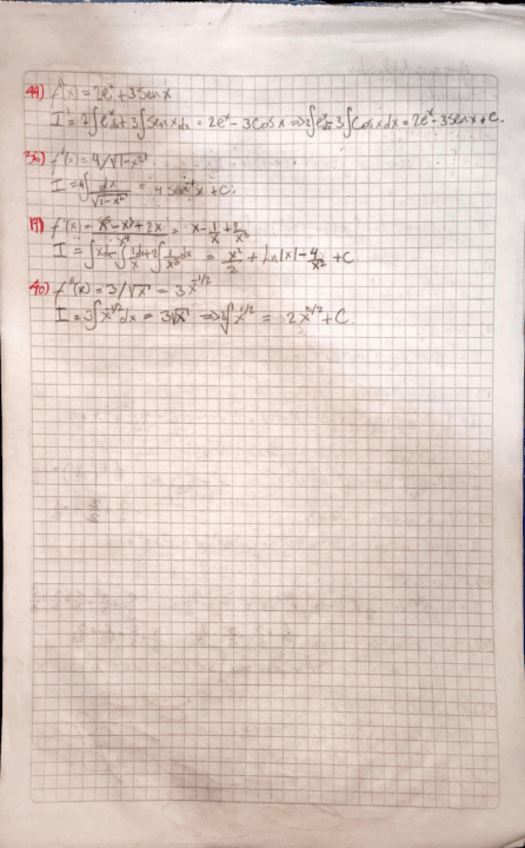 44) f''(x) = 2e^x + 3 Sen x
I = 2∫e^x dx + 3∫Sen x dx = 2e^x - 3Cos x => 2∫e^x dx 3∫Cos x dx = 2e^x - 3Sen x + C.
36) f'(x) = 4/√(1-x²)
I = 4∫dx/√(1-x²) = 4 Sen⁻¹x + C.
19) f'(x) = x⁵ - x³ + 2x / x⁴ = x - 1/x + 2/x³
I = ∫x dx - ∫1/x dx + 2∫1/x³ dx = x²/2 + Ln|x| - 4/x² + C
40) f''(x) = 3/√x = 3x^(-1/2)
I = 3∫x^(-1/2) dx = 3√x => ∫x^(1/2) = 2x^(3/2) + C.